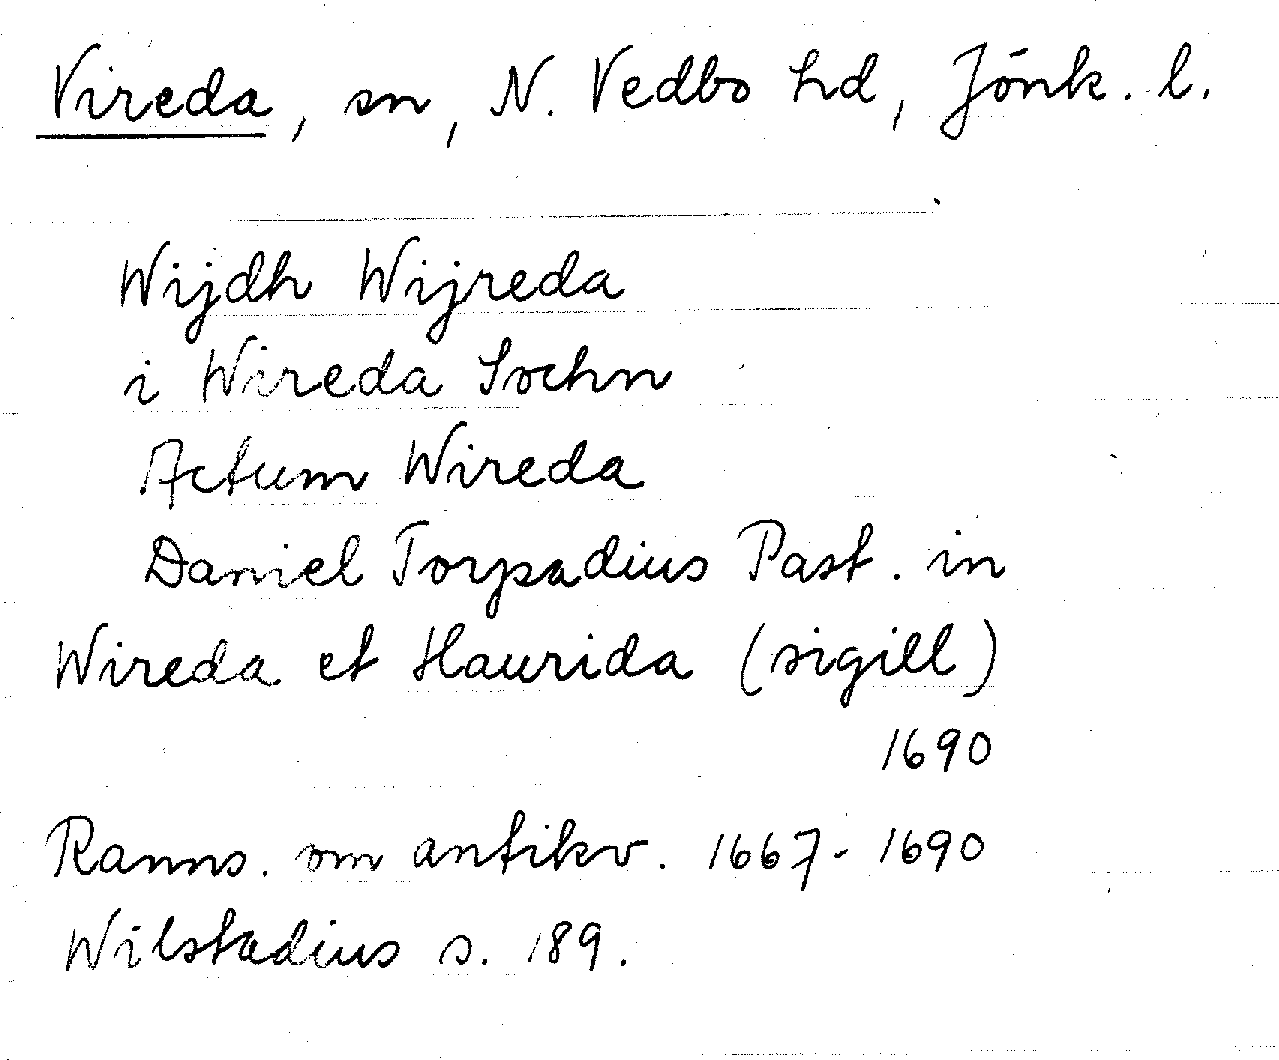 Vireda, sn, N. Vedbo hd, Jönk. l.
Wijdh Wijreda
i Wireda Sochn
Actum Wireda
Daniel Torpadius Past. in
Wireda et Haurida (sigill)
1690
Ranns. om antikv. 1667-1690
Wilstadius s. 189.